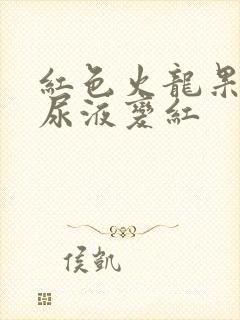 紅色火龍果
尿液變紅
侯凱